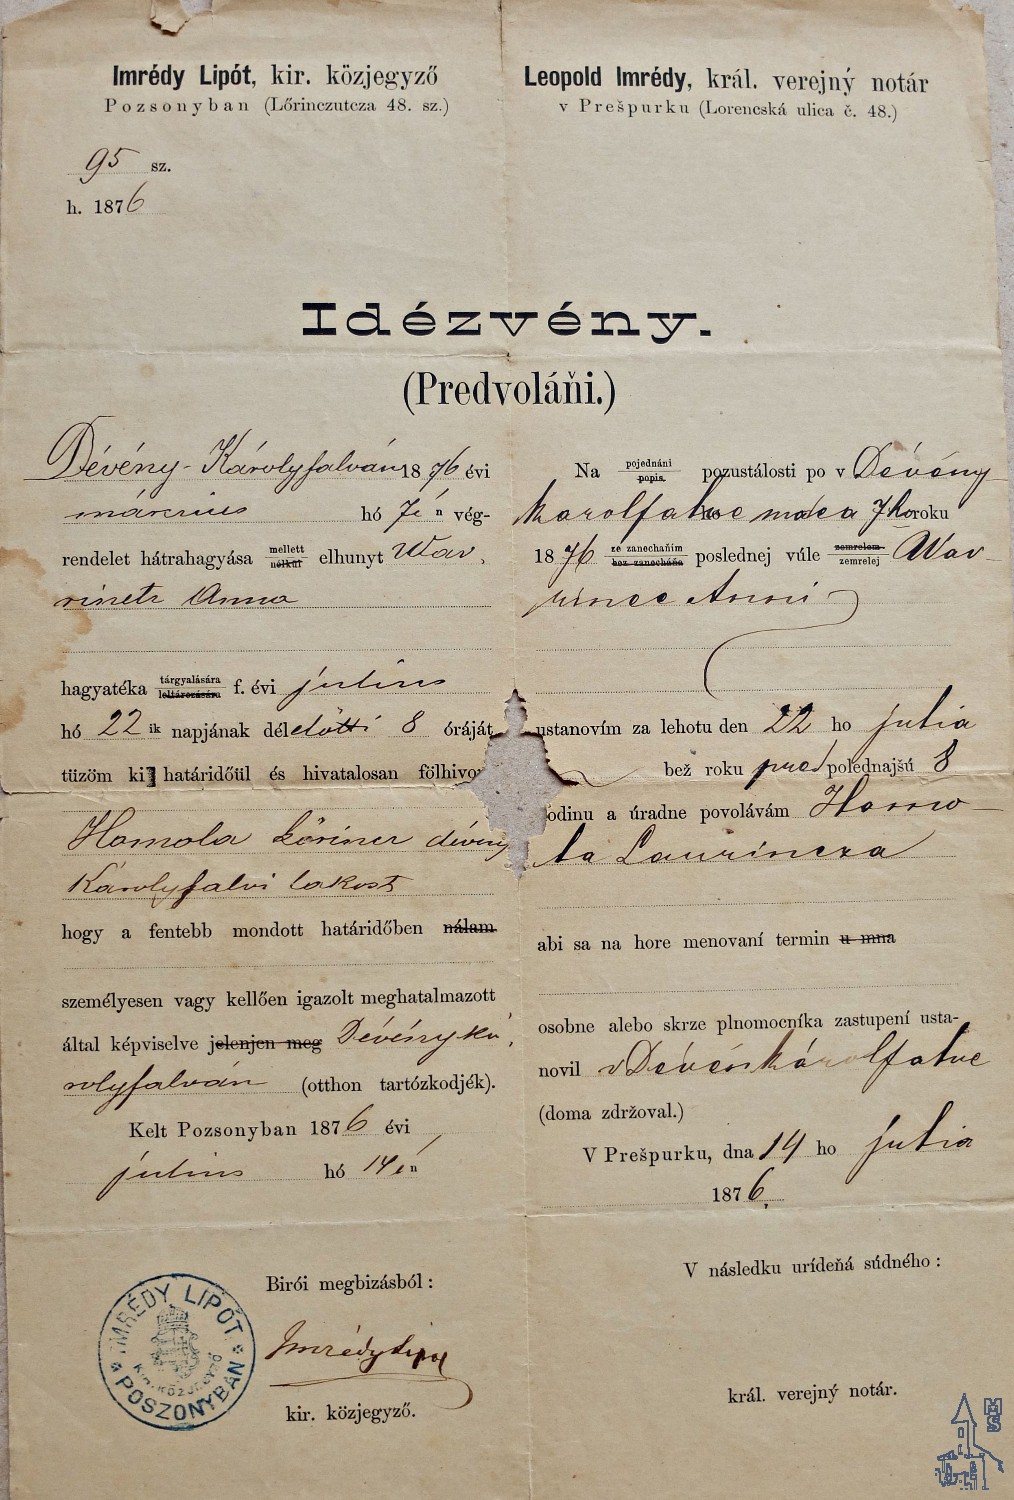 Imrédy Lipót, kir. közjegyző
Pozsonyban (Lőrinczutcza 48. sz.)
95 sz.
h. 1876
Leopold Imrédy, král. verejný notár
v Prešpurku (Lorencská ulica č. 48.)
Idézvény.
(Predvoláňi.)
Dévény-Károlyfalván 1876 évi
március hó 7én vég-
rendelet hátrahagyása mellett nélkül elhunyt Wav-
rinetz Anna
hagyatéka tárgyalására leltározására f. évi julius
hó 22 ik napjának délelőtti 8 óráját
tüzöm ki határidőül és hivatalosan fölhivom
Homola Lőrincz dévény
Károlyfalvi lakost
hogy a fentebb mondott határidőben nálam
személyesen vagy kellően igazolt meghatalmazott
által képviselve jelenjen meg Dévényká-
rolyfalván (otthon tartózkodjék).
Kelt Pozsonyban 1876 évi
julius hó 14én
Birói megbizásból:
Imrédy Lipót
kir. közjegyző.
IMRÉDY LIPÓT
KIR. KÖZJEGYZŐ
POSZONYBAN
Na pojednáni popis pozustálosti po v Dévény
karolfalve marca 7ho roku
1876 ze zanechaňím bez zanecháňa poslednej vúle zemrelem zemrelej Wav-
rinec Anni
ustanovím za lehotu den 22 ho julia
bež roku predpolednajšú 8
hodinu a úradne povolávám Homo-
la Laurincza
abi sa na hore menovaní termin u mna
osobne alebo skrze plnomocníka zastupení usta-
novil v Dévénkárolfalve
(doma zdržoval.)
V Prešpurku, dna 14 ho julia
1876.
V následku urídeňá súdného:
král. verejný notár.
MS